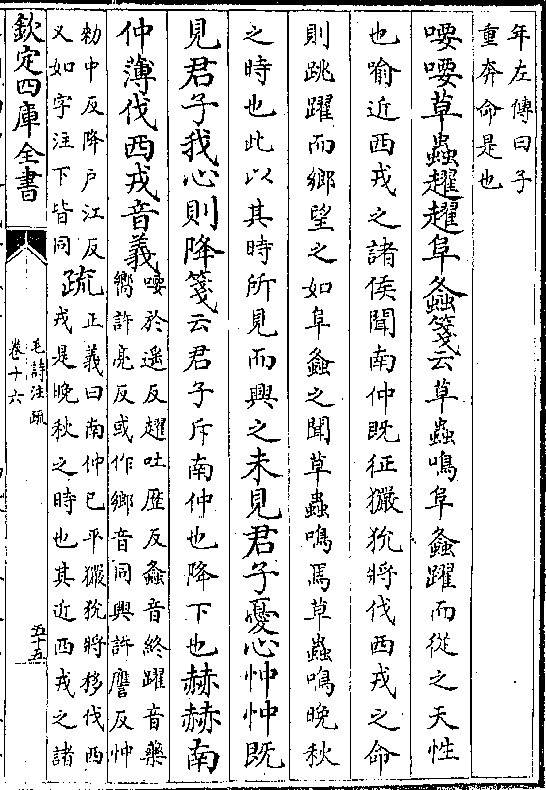 年左傳曰子
重奔命是也
喓喓草蟲趯趯阜螽箋云草蟲鳴阜螽躍而從之天性
也喻近西戎之諸侯聞南仲既征玁狁將伐西戎之命
則跳躍而鄉望之如阜螽之聞草蟲鳴焉草蟲鳴晚秋
之時也此以其時所見而興之未見君子憂心忡忡既
見君子我心則降箋云君子斥南仲也降下也赫赫南
仲薄伐西戎音義
喓於遥反趯吐歴反螽音終躍音藥
嚮許亮反或作鄉音同興許膺反忡
勅中反降户江反
又如字注下皆同
疏
正義曰南仲已平玁狁將移伐西
戎是晚秋之時也其近西戎之諸
欽定四庫全書
毛詩注疏
卷十六
五十五